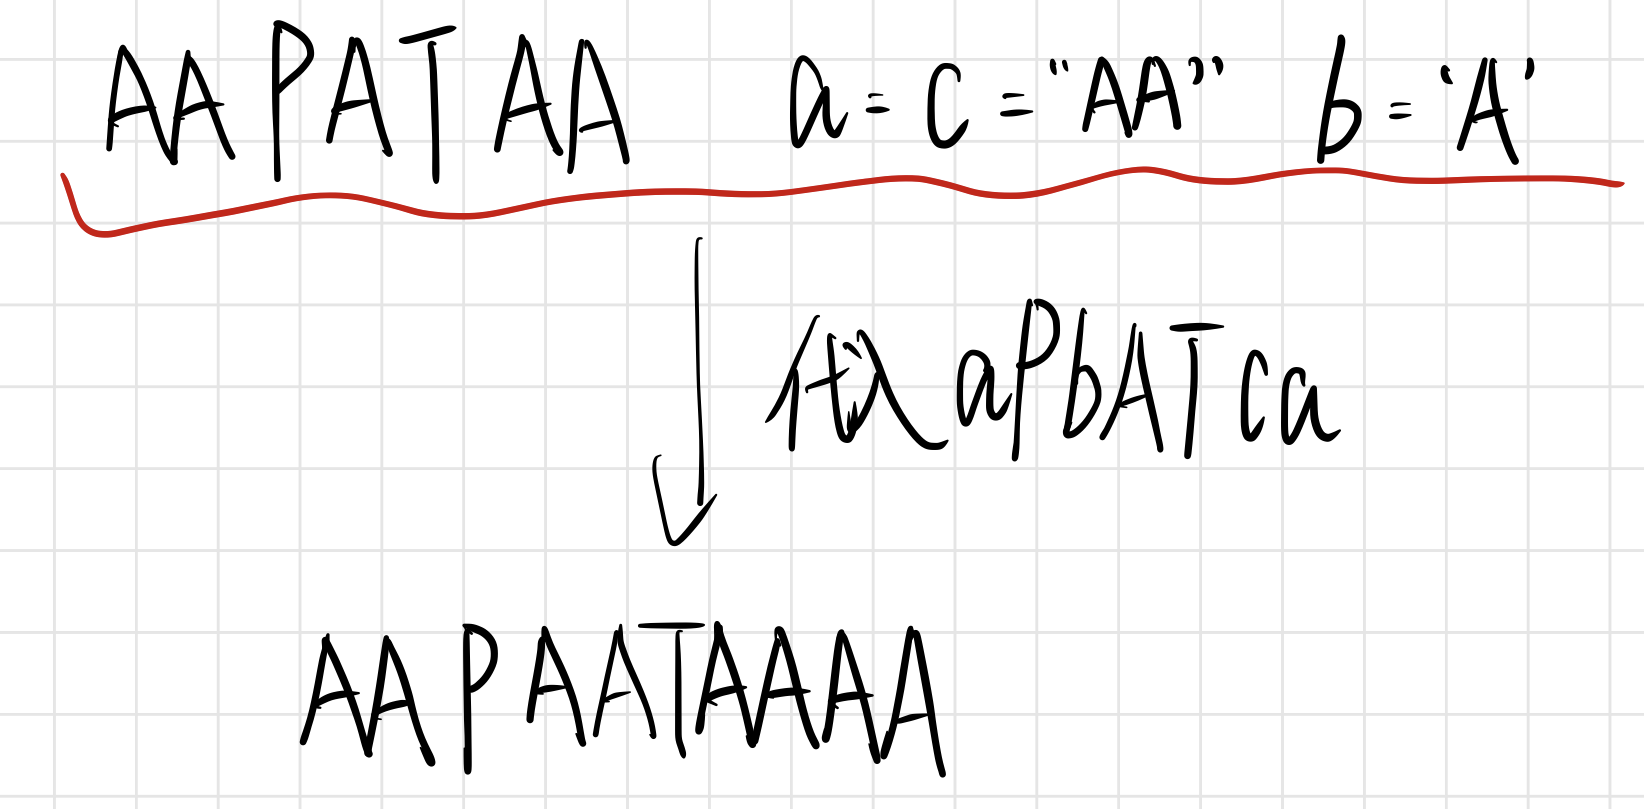 AAPATAA a=c="AA" b="A"
代入 aPbATca
AAPAATAAAA